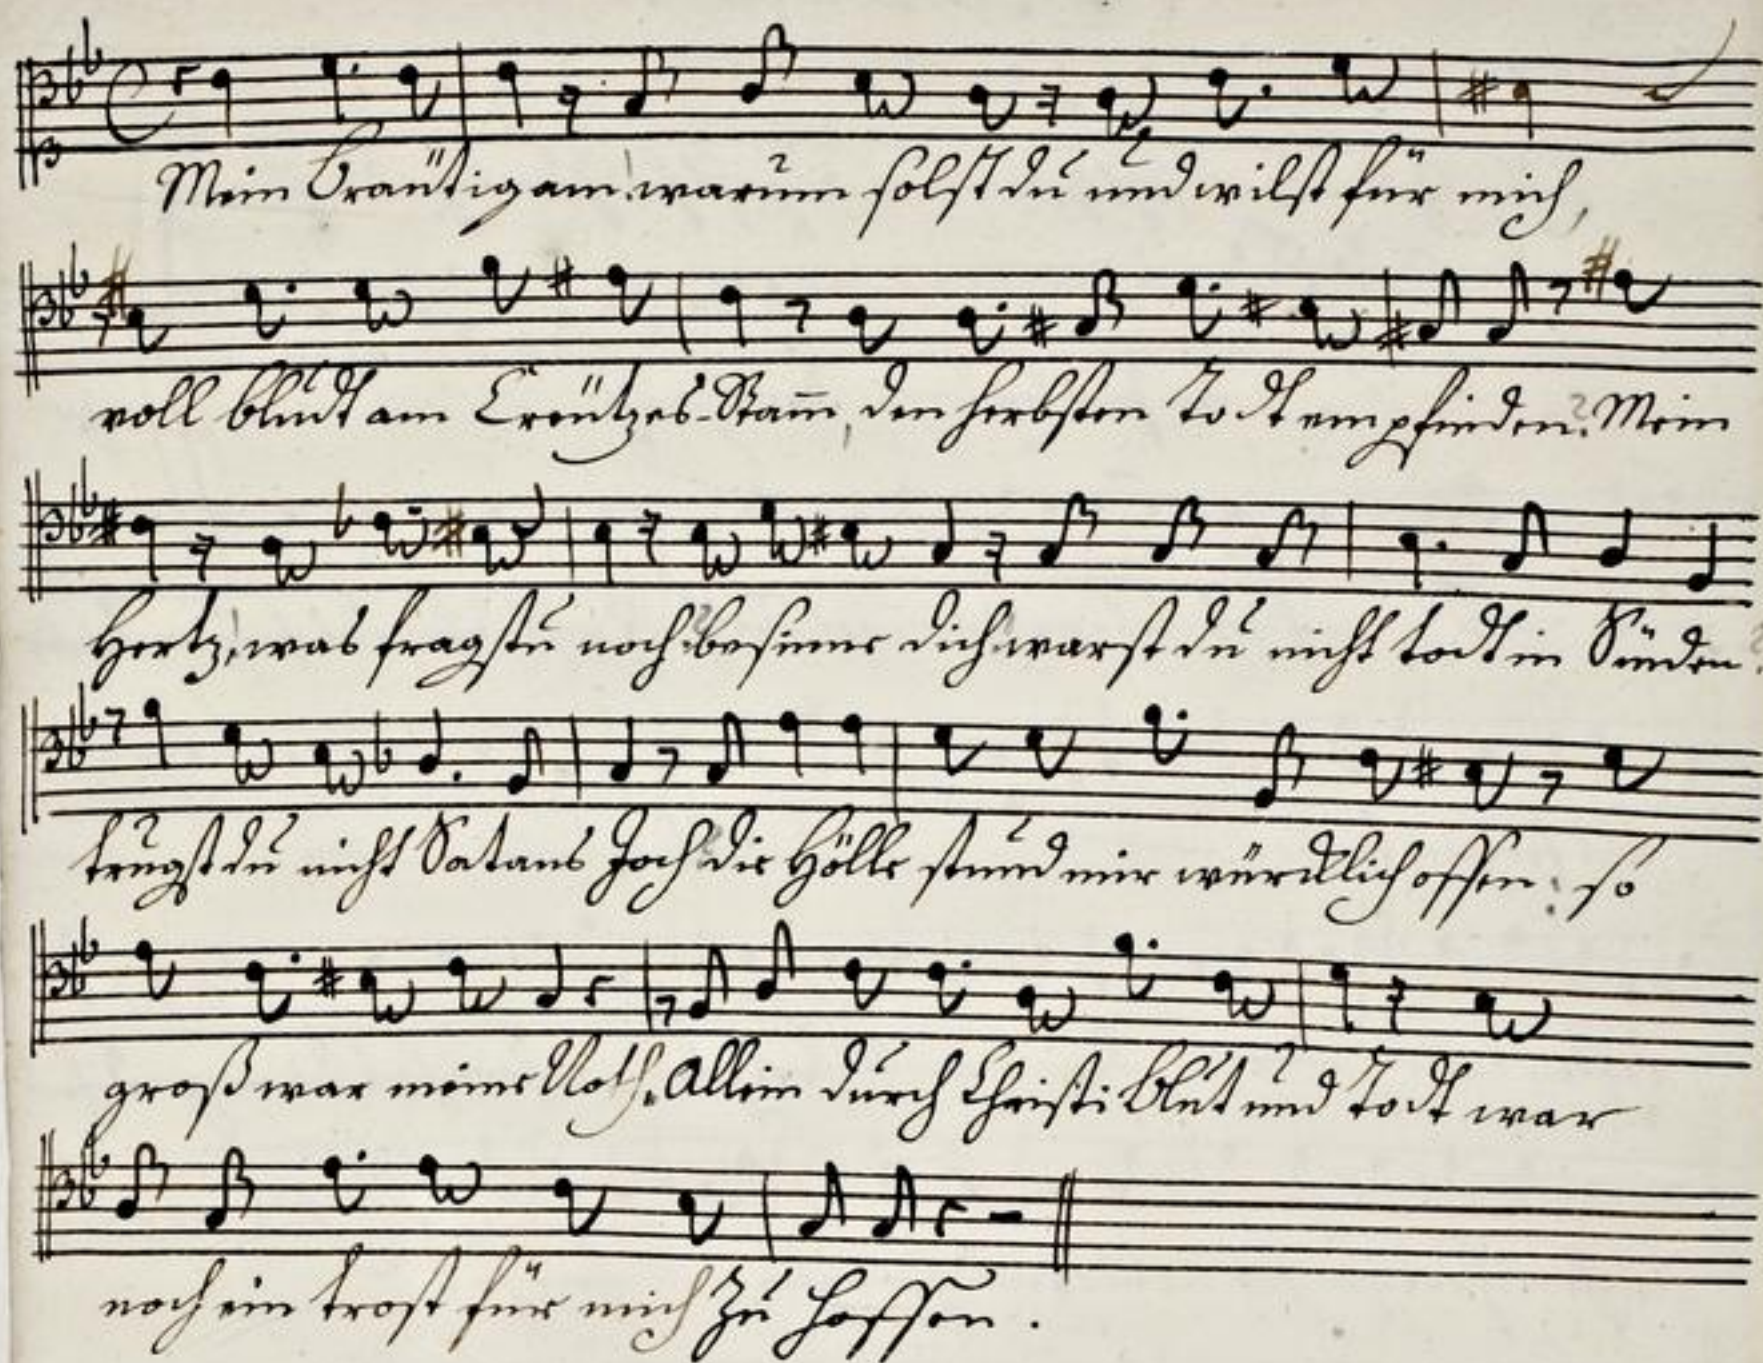 Mein Bräutigam warum solst du und wilst für mich,
voll bludt am Creützes-Stam̄, den herbsten Todt empfinden? Mein
Hertz, was fragstu noch besinne dich warst du nicht todt in Sünden
trugst du nicht Satans Joch die Hölle stund mir würcklich offen: so
groß war meine Noth. Allein durch Christi Blut und Todt war
noch ein trost für mich zu hoffen.